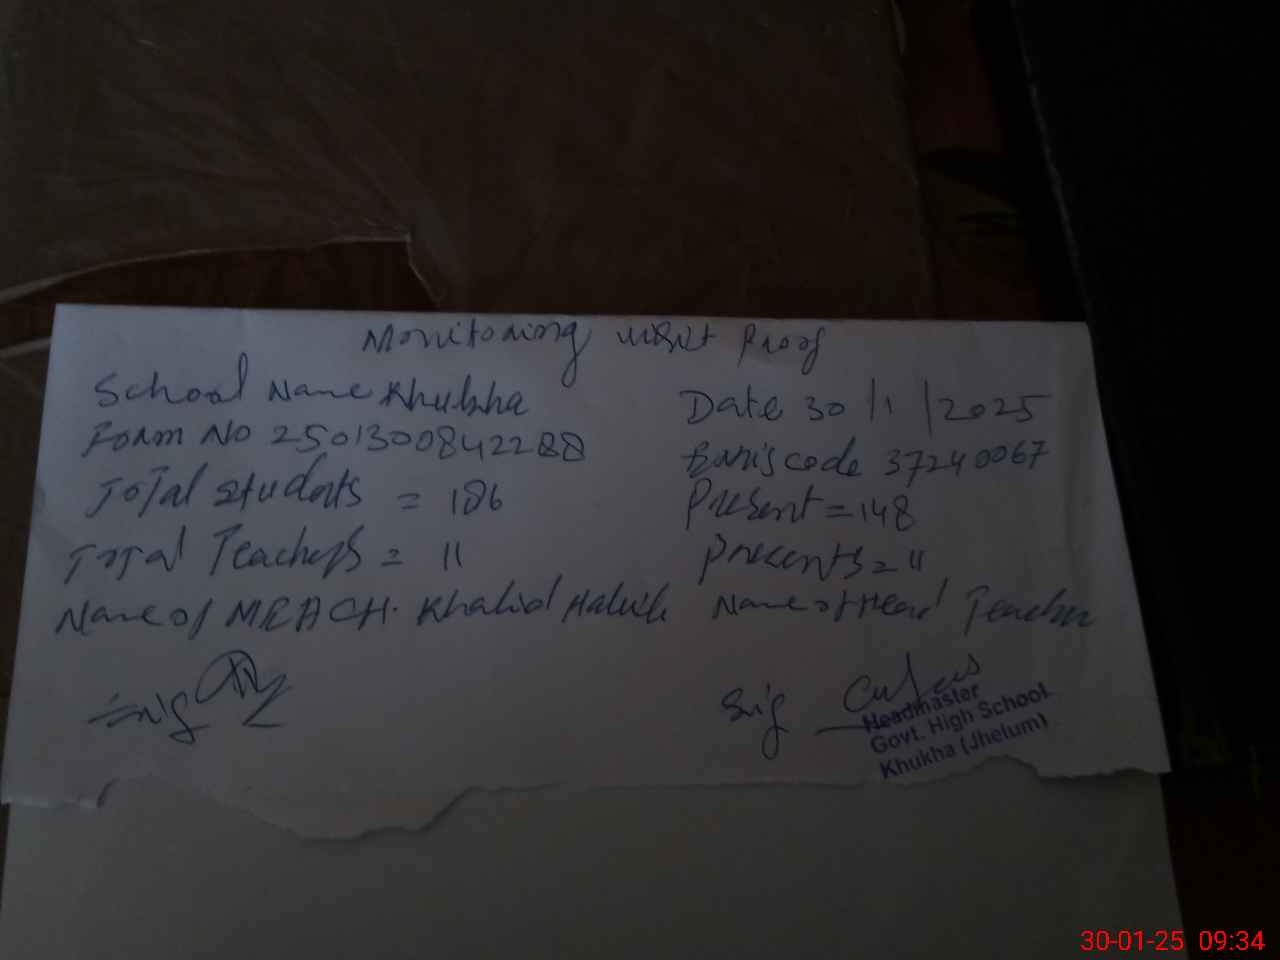 Monitoring visit Proof
School Name Khukha Date 30/1/2025
Form No 2501300842288 Emis code 37240067
Total students = 186 Present = 148
Total Teachers = 11 Presents = 11
Name of MEACH. Khalid Name of Head Teacher
Sig Sig
Headmaster
Govt. High School
Khukha (Jhelum)
30-01-25 09:34